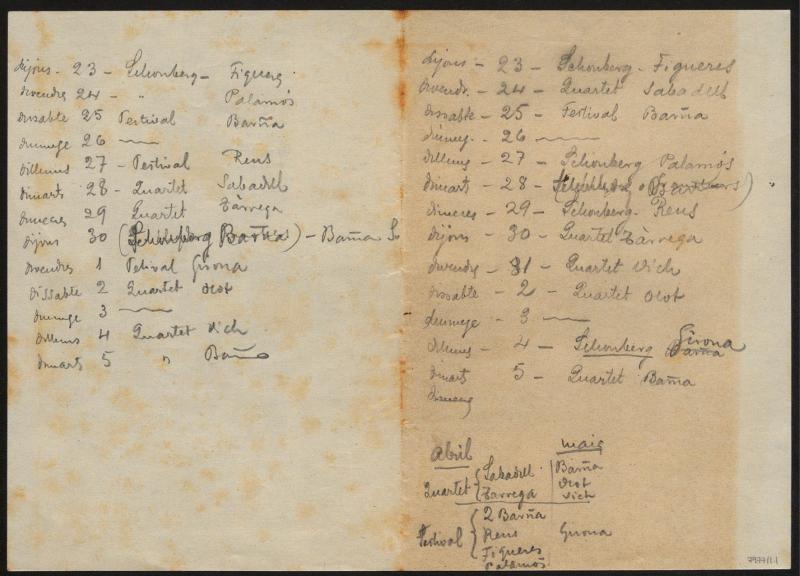 dijous - 23 - Schonberg - Figueres
divendres 24 - " Palamós
dissabte 25 Festival Barña
diumenge 26
dilluns - 27 - Festival Reus
dimarts 28 - Quartet Sabadell
dimecres 29 Quartet Tàrrega
dijous 30 ( Barña) - Barña
divendres 1 Festival Girona
dissabte 2 Quartet Olot
diumenge 3
dilluns 4 Quartet Vich
dimarts 5 " Barña
dijous - 23 - Schonberg - Figueres
divendr. - 24 - Quartet Sabadell
dissabte - 25 - Festival Barña
diumeg. - 26
dilluns - 27 - Schonberg Palamós
dimarts - 28 -
dimecres - 29 - Schonberg. Reus
dijous - 30 - Quartet Tàrrega
divendr - 31 - Quartet Vich
dissabte - 2 - Quartet Olot
diumenge - 3
dilluns - 4 - Schonberg Girona Barña
dimarts 5 - Quartet Barña
dimecres
abril maig
Quartet { Sabadell | Barña
Tarrega Olot
Vich
Festival { 2 Barña
Reus Girona
Figueres
Palamós
7977/1-1